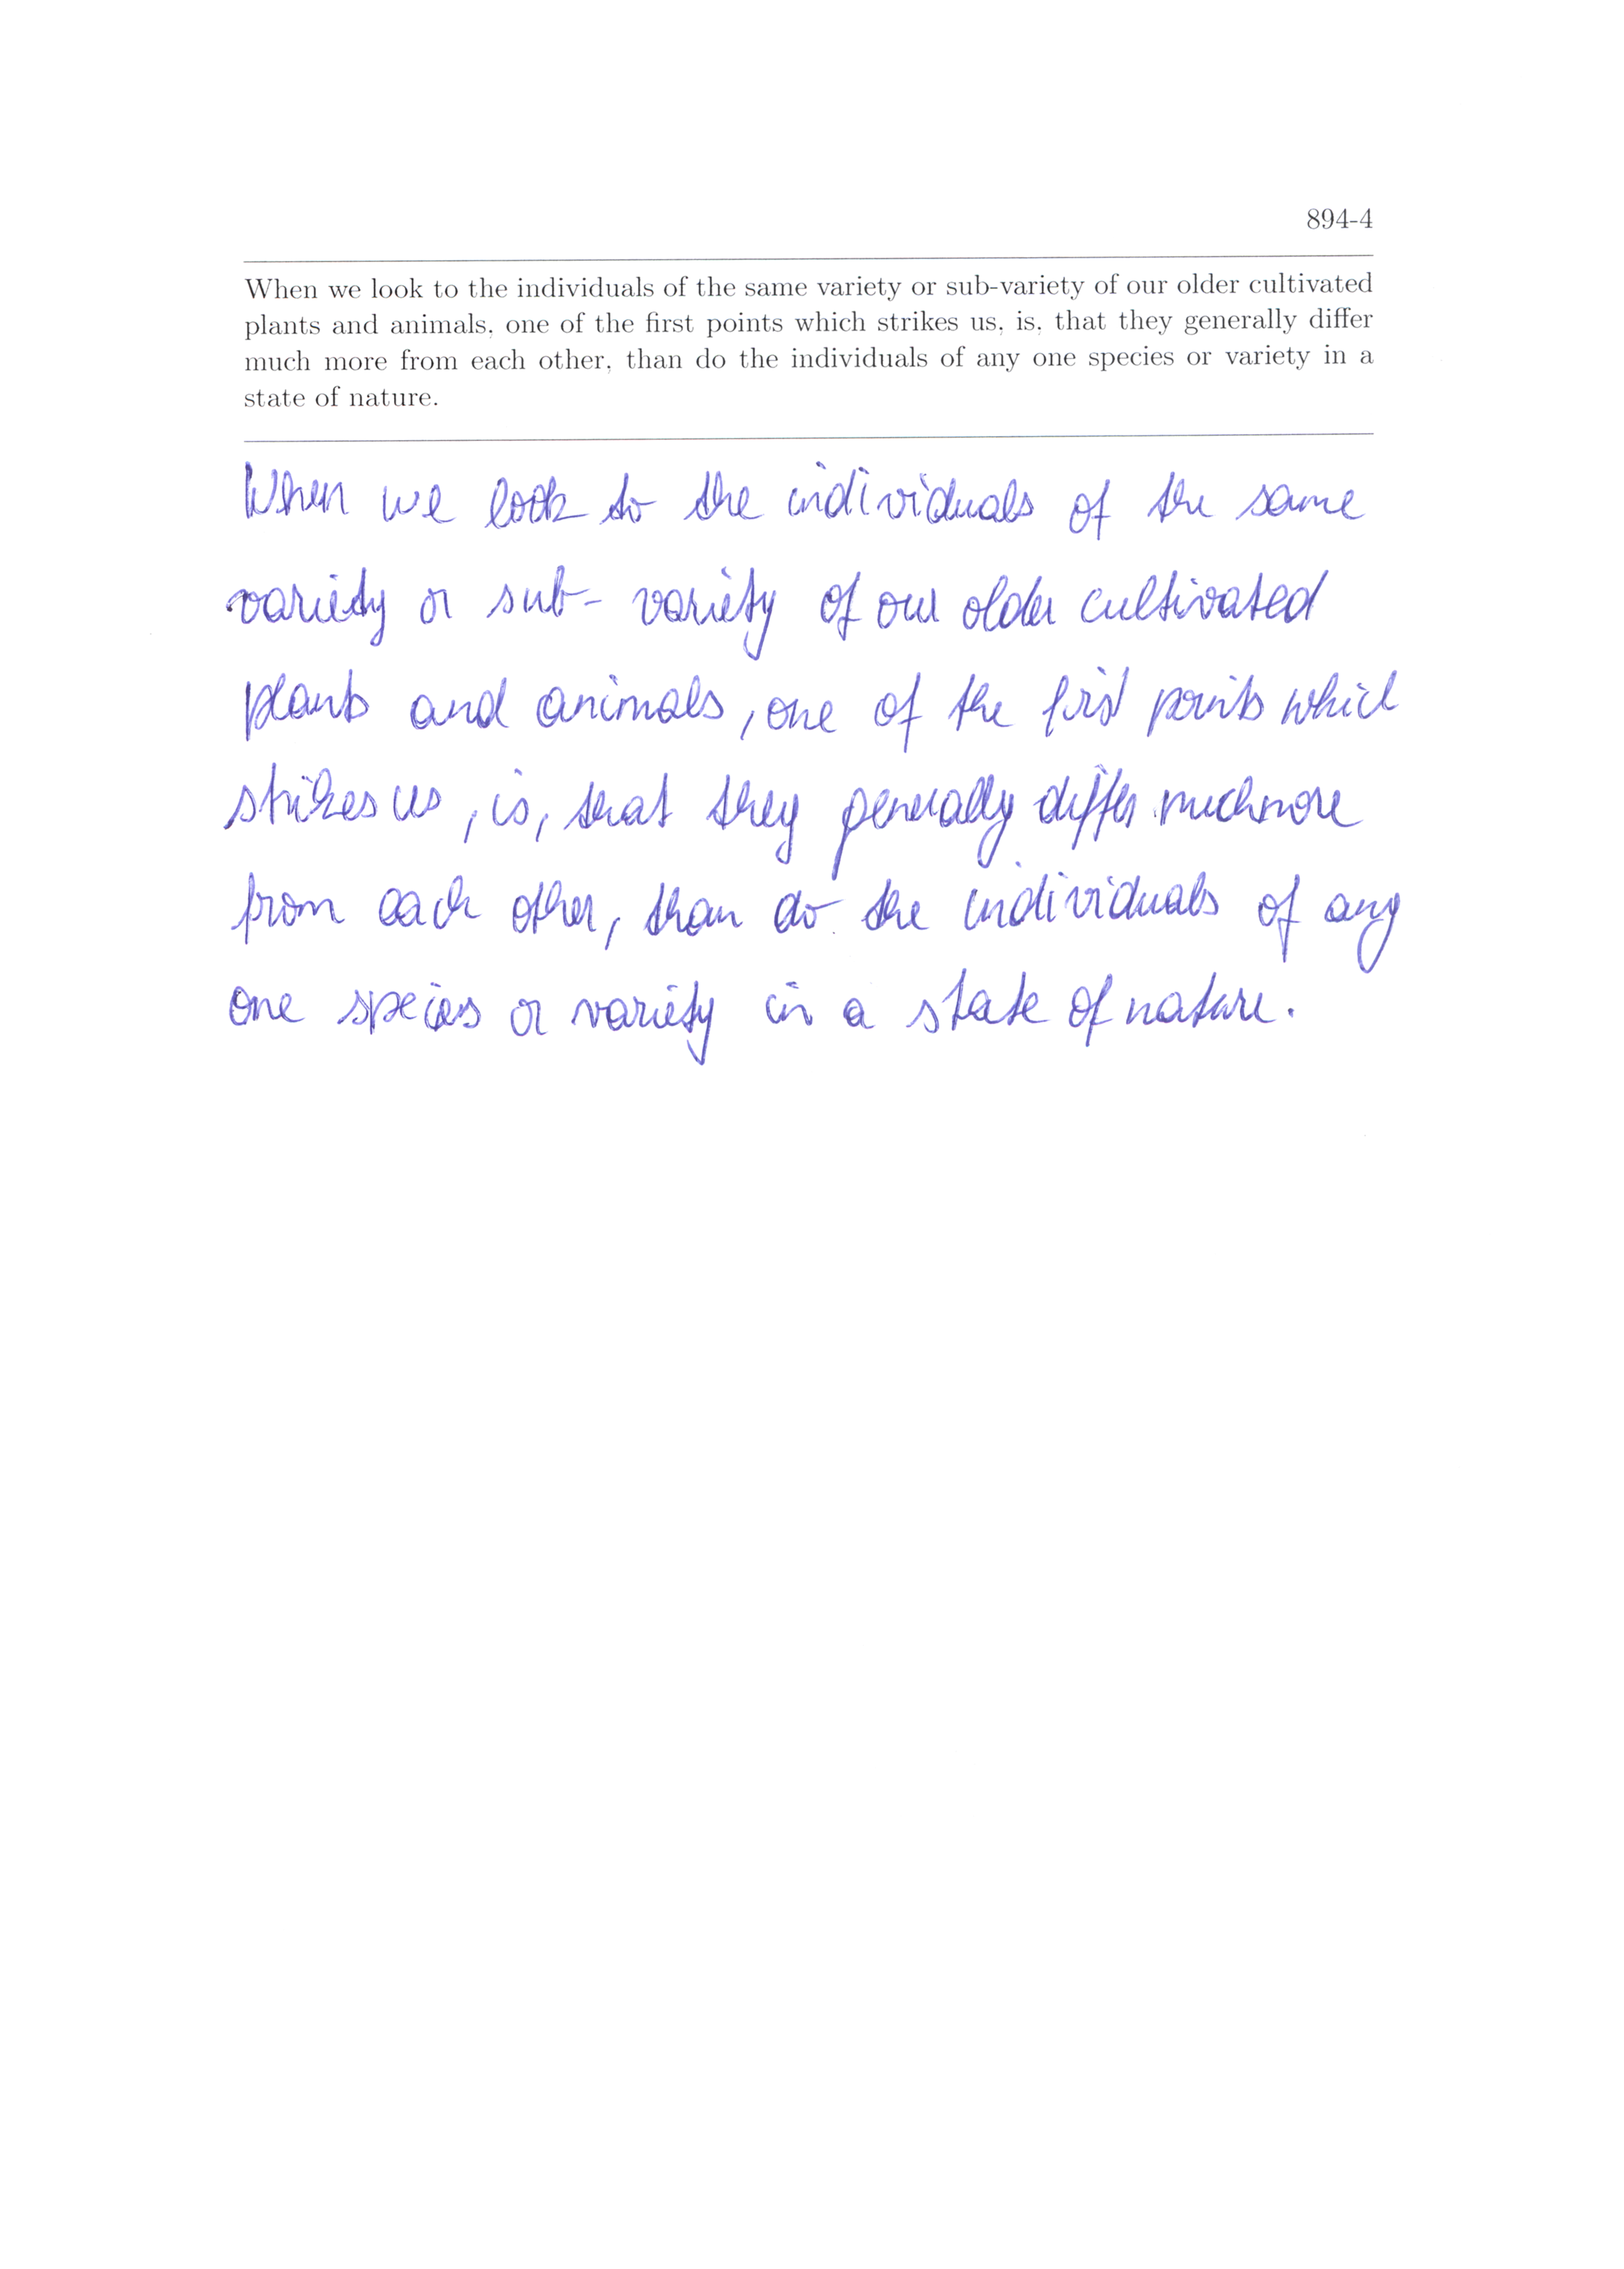 894-4
When we look to the individuals of the same variety or sub-variety of our older cultivated
plants and animals, one of the first points which strikes us, is, that they generally differ
much more from each other, than do the individuals of any one species or variety in a
state of nature.
When we look to the individuals of the same
variety or sub-variety of our older cultivated
plants and animals, one of the first points which
strikes us, is, that they generally differ much more
from each other, than do the individuals of any
one species or variety in a state of nature.